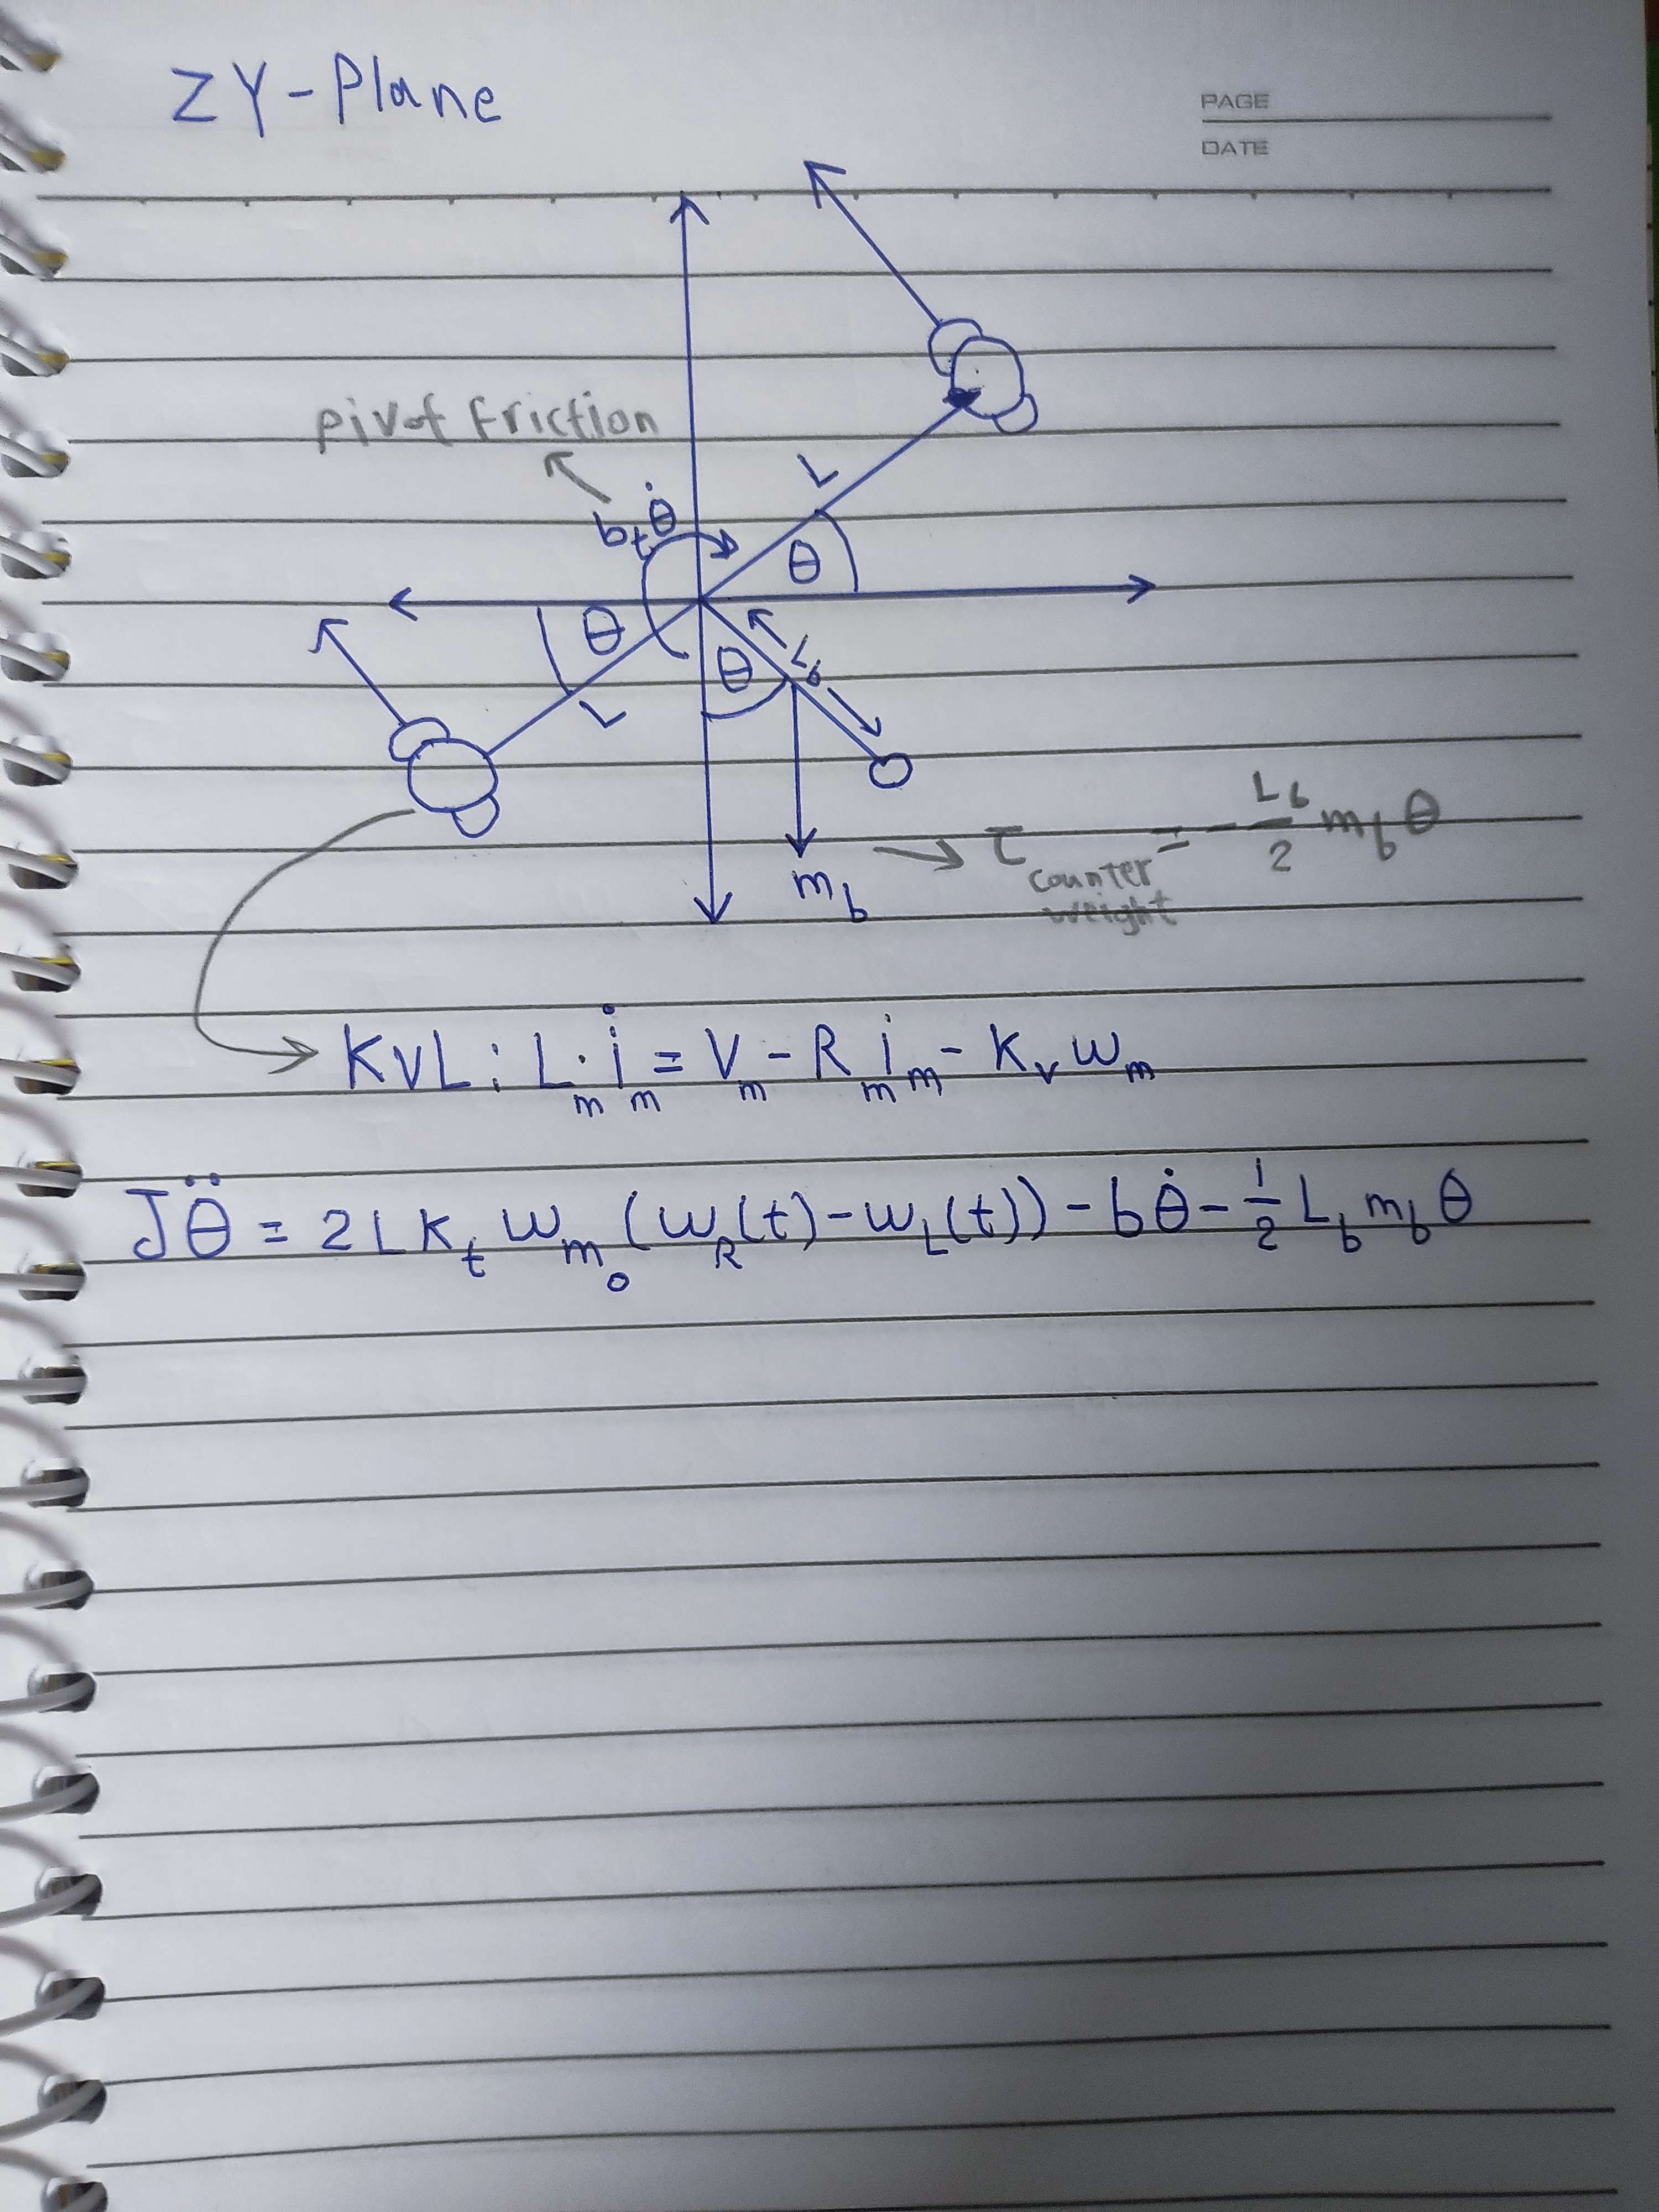 ZY-Plane
PAGE
DATE
pivot friction
b_t θ̇
L
θ
θ
θ
L_b
L
m_b
τ_counter weight = - L_b/2 m_b θ
KVL: L_m · i̇_m = V_m - R_m i_m - K_v ω_m
Jθ̈ = 2 L K_t ω_m₀ (ω_R(t) - ω_L(t)) - bθ̇ - 1/2 L_b m_b θ